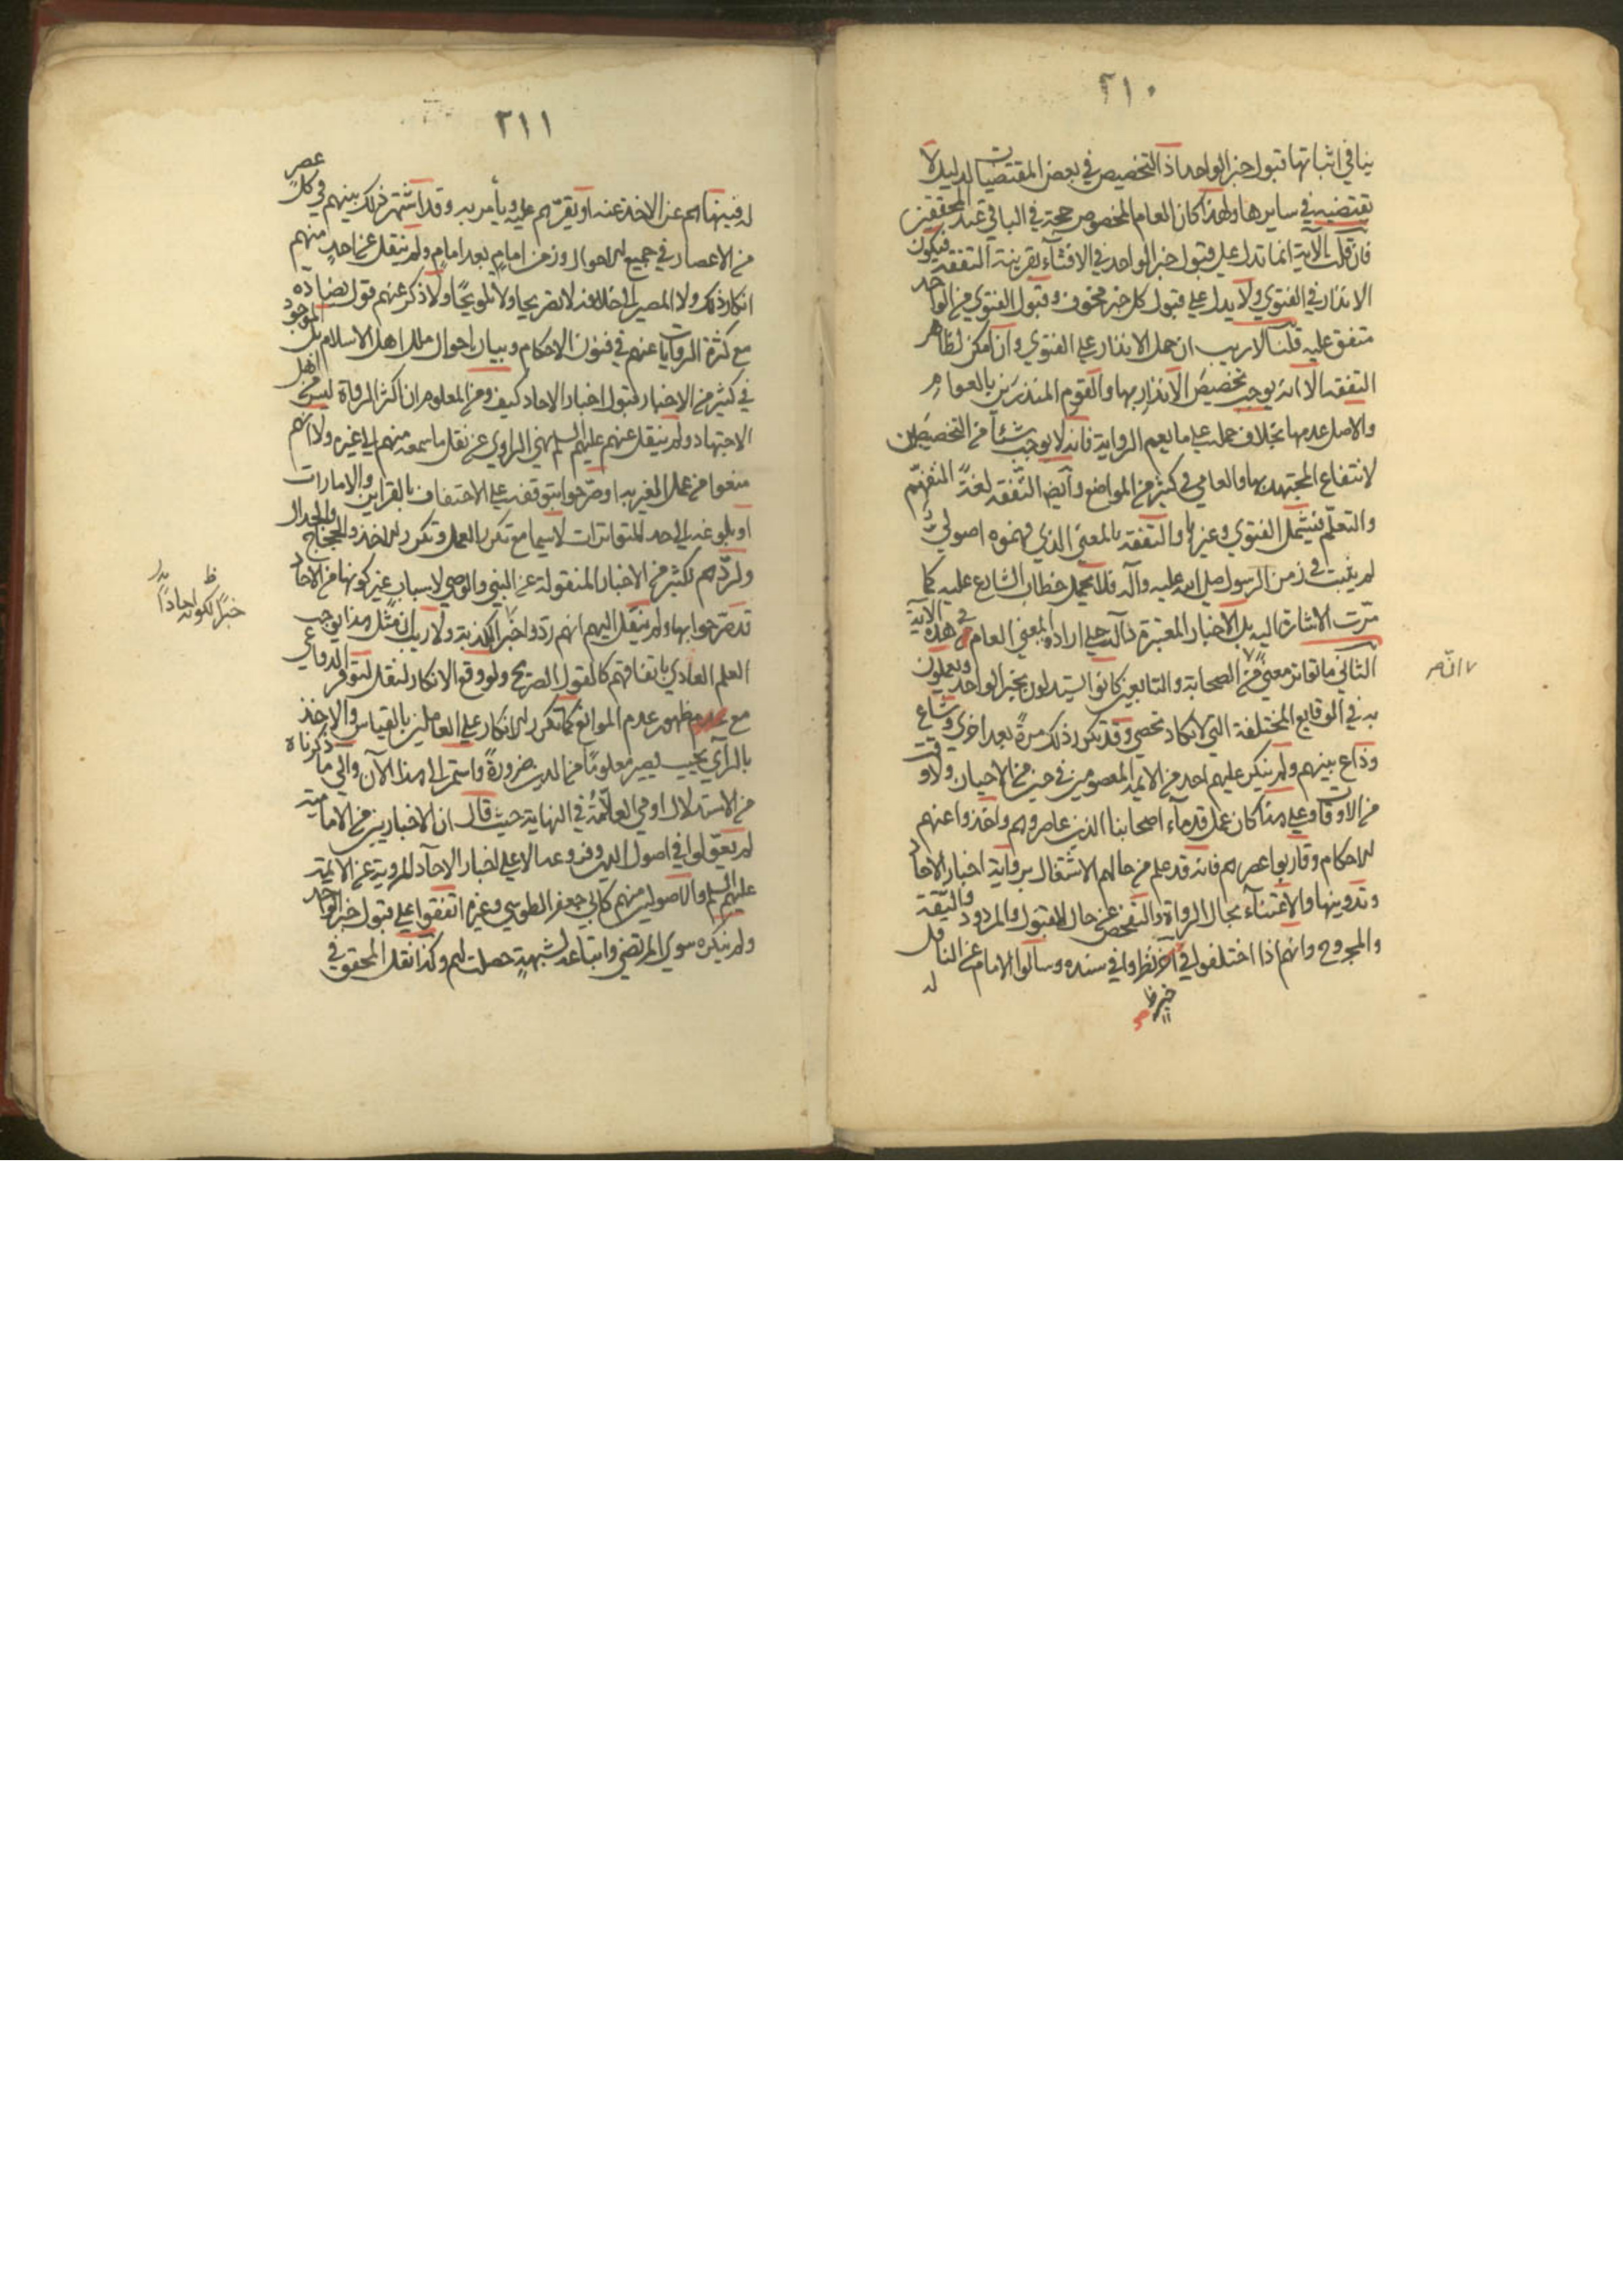 ٢١٠
ينافي اثباتها قبول خبر الواحد اذ التخصيص في بعض المقتضيات لدليل لا
يقتضيه في سايرها ولهذا كان العام المخصوص حجة في الباقي عند المحققين
فان قلت الآية انما تدل على قبول خبر الواحد في الافتاء بقرينة التفقه فيكون
الانذار في الفتوى ولا يدل على قبول كل خبر مخوف وقبول الفتوى من الواحد
متفق عليه قلنا لا ريب ان حمل الانذار على الفتوى وان امكن لظاهر
التفقه الا انه يوجب تخصيص الانذار بها والقوم المنذرين بالعوام
والاصل عدمها بخلاف حمله على ما يعم الرواية فانه لا يوجب شيئا من التخصيصين
لانتفاع المجتهد بها والعامي في كثير من المواضع وايضا التفقه لغة التفهم
والتعلم فيشمل الفتوى وغيرها والتفقه بالمعنى الذي فهموه اصولي
لم يثبت في زمن الرسول صلى الله عليه وآله فلا يحمل خطاب الشارع عليه كما
مرت الاشارة اليه بل الاخبار المعتبرة دالة على ارادة المعنى العام في هذه الآية
الثاني ما تواتر معنى من الصحابة والتابعين كانوا يستدلون بخبر الواحد ويعملون
به في الوقايع المختلفة التي لا تكاد تحصى وقد تكرر ذلك مرة بعد اخرى وشاع
وذاع بينهم ولم ينكر عليهم احد من الائمة المعصومين في حين من الاحيان ولا وقت
من الاوقات وعلى هذا كان عمل قدماء اصحابنا الذين عاصروهم واخذوا عنهم
الاحكام وقاربوا عصرهم فانه قد علم من حالهم الاشتغال برواية اخبار الاحاد
وتدوينها والاعتناء بحال الرواة والتفحص عن حال المقبول والمردود والثقة
والمجروح وانهم اذا اختلفوا في آخر نظروا في سنده وسألوا الامام عن الناقل
له
خبر ظ
٢١١
له فينهاهم عن الاخذ عنه او يقرهم عليه ويأمر به وقد اشتهر ذلك بينهم في كل عصر
من الاعصار في جميع الاحوال وزمن امام بعد امام ولم ينقل عن احد منهم
انكار ذلك ولا المصير الى خلافه لا تصريحا ولا تلويحا ولا ذكر عنهم قول يضاده
مع كثرة الروايات عنهم في فنون الاحكام وبيان احوال ملل اهل الاسلام بل الموجود
في كثير من الاخبار قبول اخبار الاحاد كيف ومن المعلوم ان اكثر الرواة ليس من اهل
الاجتهاد ولم ينقل عنهم عليهم السلم نهي الراوي عن نقل ما سمعه منهم الى غيره ولا انهم
منعوا من عمل الغير به او صرحوا بتوقفه على الاحتفاف بالقراين والامارات
او بلوغه الى حد المتواترات لاسيما مع تكرر العمل وتكرر الاخذ والحجاج والجدال
ولردهم لكثير من الاخبار المنقولة عن النبي والوصي لاسباب غير كونها من الاحاد
قد صرحوا بها ولم ينقل اليهم انهم ردوا خبرا لكذبه ولا ريب ان مثل هذا يوجب
العلم العادي باتفاقهم كالقول الصريح ولو وقع الانكار لنقل لتوفر الدواعي
مع ظهور عدم الموانع كما تكرر الانكار على العاملين بالقياس والاخذ
بالرأي بحيث يصير معلوما من الدين ضرورة واستمر الى هذا الآن والى ما ذكرناه
من الاستدلال اومى العلامة في النهاية حيث قال ان الاخباريين من الامامية
لم يعولوا في اصول الدين وفروعه الا على اخبار الاحاد المروية عن الائمة
عليهم السلم والاصوليين منهم كابي جعفر الطوسي وغيره اتفقوا على قبول خبر الواحد
ولم ينكره سوى المرتضى واتباعه لشبهة حصلت لهم وكذا نقل المحقق في
ظ
خبرا لكونه احادا